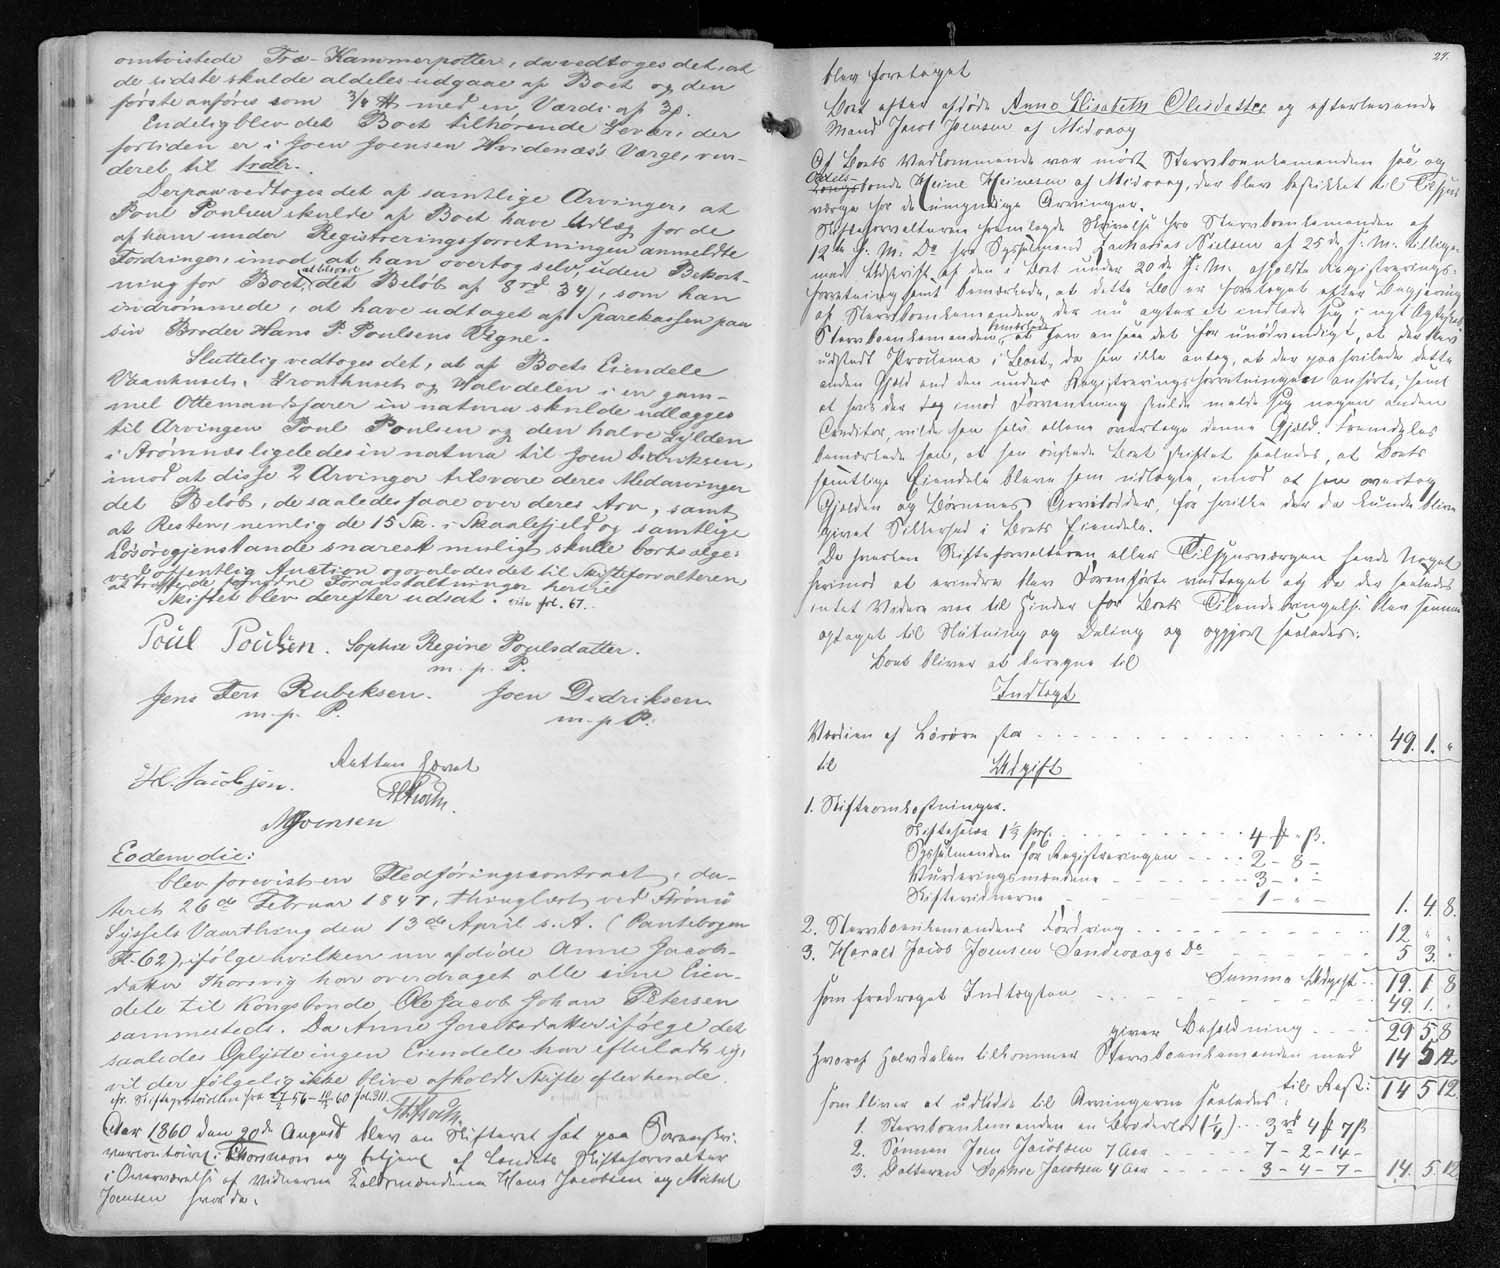 omtvistede Træ-Kammerpotter, da vedtoges det, at
de sidste skulde aldeles udgaae af Boet og den
første anføres som 3/4 ## med en Værdi af 3ß.
Endelig blev det Boet tilhørende Gevær, der
fortiden er i Joen Joensen Hvidenæs's Værge, vur-
deret til
Derpaa vedtoges det af samtlige Arvinger, at
Poul Poulsen skulde af Boet have Udlæg for de
af ham under Registreringsforretningen anmeldte
Fordringer, imod at han overtog selv, uden Bekost-
ning for Boet, at tilsvare det Beløb af 8rd 34ß, som han
indrømmede, at have udtaget af Sparekassen paa
sin Broder Hans P. Poulsens Vegne.
Sluttelig vedtoges det, at af Boets Eiendele
Vaanhuset, Gronthuset og Halvdelen i en gam-
mel Ottemandsfarer in natura skulde udlægges
til Arvingen Poul Poulsen og den halve Gylden
i Strømnæs ligeledes in natura til Joen Didriksen,
imod at disse 2 Arvinger tilsvare deres Medarvinger
det Beløb, de saaledes faae over deres Arv, samt
at Resten, nemlig de 15 Sk. i Skaalefjeld og samtlige
Løsøregjenstande snarest muligt skulle bortsælges
ved offentlig Auction og overlodes det til Skifteforvalteren,
at træffe de fornødne Foranstaltninger hertil
Skiftet blev derefter udsat. vide fol. 67.
Poul Poulsen. Sophie Regine Poulsdatter.
m. p. P.
Jens Rubeksen. Joen Didriksen.
m. p. P. m. p. P.
Retten hævet
H. Jacobsen.
MJoensen
Eodem die:
blev forevist en Fledføringscontract, da-
teret 26de Februar 1847, thinglæst ved Strømø
Syssels Vaarthing den 13de April s. A. (Pantebogen
Fol. 62), ifølge hvilken nu afdøde Anne Jacobs-
datter Thorsvig har overdraget alle sine Eien-
dele til Kongsbonde Ole Jacob Johan Petersen
sammesteds. Da Anne Jacobsdatter ifølge det
saaledes Oplyste ingen Eiendele har efterladt sig,
vil der følgelig ikke blive afholdt Skifte efter hende.
cfr. Skifteprotokollen fra 27/7 56 - fol. 311.
Aar 1860 den 20de August blev en Skifteret sat paa Sorenskri-
vercontoiret i Thorshavn og betjent af Landets Skifteforvalter
i Overværelse af Vidnerne Eedsmændene Hans Jacobsen og Michel
Joensen hvorda:
27.
blev foretaget
Boet efter afdøde Anne Elisabeth Olesdatter og efterlevende
Mand Jacob Joensen af Midvaag
I Boets Vedkommende var mødt Stervboenkemanden selv og
Odels-
bonde Heine Heinesen af Midvaag, der blev beskikket til Tilsyns-
værge for de umyndige Arvinger.
Skifteforvalteren fremlagde Skrivelse fra Stervboenkemanden af
12te f. M. Do fra Sysselmand Zacharias Nielsen af 25de f. M. tillige-
med Udskrift af den i Boet under 20de f. M. afholdte Registrerings-
forretning samt bemærkede, at dette Bo er foretaget efter Begjæring
af Stervboenkemanden, der nu agter at indlade sig i nyt Ægteskab.
Stervboenkemanden bemærkede, at han ansaae det for unødvendigt, at der blev
udstedt Proclama i Boet, da han ikke antog, at der paahvilede dette
anden Gjæld end den under Registreringsforretningen anførte, samt
at hvis der dog imod Forventning skulde melde sig nogen anden
Creditor, vilde han selv allene overtage denne Gjæld. Fremdeles
bemærkede han, at han ønskede Boet skiftet saaledes, at Boets
samtlige Eiendele bleve ham udlagte, imod at han overtog
Gjælden og Børnenes Arvelodder, for hvilke der da kunde blive
givet Sikkerhed i Boets Eiendele.
Da hverken Skifteforvalteren eller Tilsynsværgen havde Noget
herimod at erindre blev Forenførte vedtaget og da der saaledes
intet Videre var til Hinder for Boets Tilendebringelse blev samme
optaget til Slutning og Deling og opgjort saaledes:
Boet bliver at beregne til
Indtægt
Værdien af Løsøre stor . . . 49. 1. "
til Udgift
1. Skifteomkostninger.
Skiftesalær 1 1/2 prC. . . . 4 # " ß.
Sysselmanden for Registreringen . . . 2 - 8 -
Vurderingsmændene . . . 3 - " -
Skiftevidnerne . . . 1 - " - 1. 4 8.
2. Stervboenkemandens Fordring . . . 12 " "
3. Harald Jacob Joensen Sandevaags Do . . . 5 3. "
Summa Udgift . . . 19. 1. 8
som fradraget Indtægten . . . 49. 1. "
giver Beholdning . . . 29 5 8
hvoraf Halvdelen tilkommer Stervboenkemanden med 14 5 12
til Rest: 14 5 12.
som bliver at udlodde til Arvingerne saaledes:
1. Stervboenkemanden en Broderlod (1/4) . . . 3rd 4 # 7ß
2. Sønnen Joen Jacobsen 7 Aar . . . 7 - 2 - 14 -
3. Datteren Sophie Jacobsen 4 Aar . . . 3 - 4 - 7 - 14. 5 12